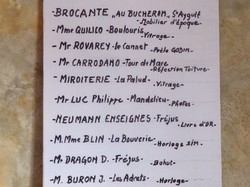 - BROCANTE "AU BUCHERON, St Aygulf
Mobilier d'époque
- Mme QUILICO - Boulouris
Vitrage -
- Mr ROVARCY - le Cannet -
Poële GODIN -
- Mr CARRODANO - Tour de Mare
Réfection Toiture
- MIROITERIE - La Palud -
- Vitrage -
- Mr LUC Philippe - Mandelieu -
Photos -
- NEUMANN ENSEIGNES - Fréjus
Livre d'OR -
- M. Mme BLIN - La Bouverie
- Horloge
- M. DRAGON D. - Fréjus -
- Bahut -
- M. BURON J. - Les Adrets -
Horloge -